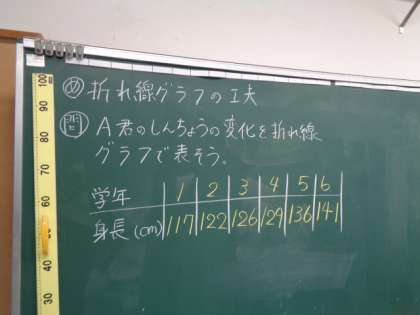 め 折れ線グラフの工夫
問 A君のしんちょうの変化を折れ線
グラフで表そう。
学年 1 2 3 4 5 6
身長(cm) 117 122 126 129 136 141
100
90
80
70
60
40
30